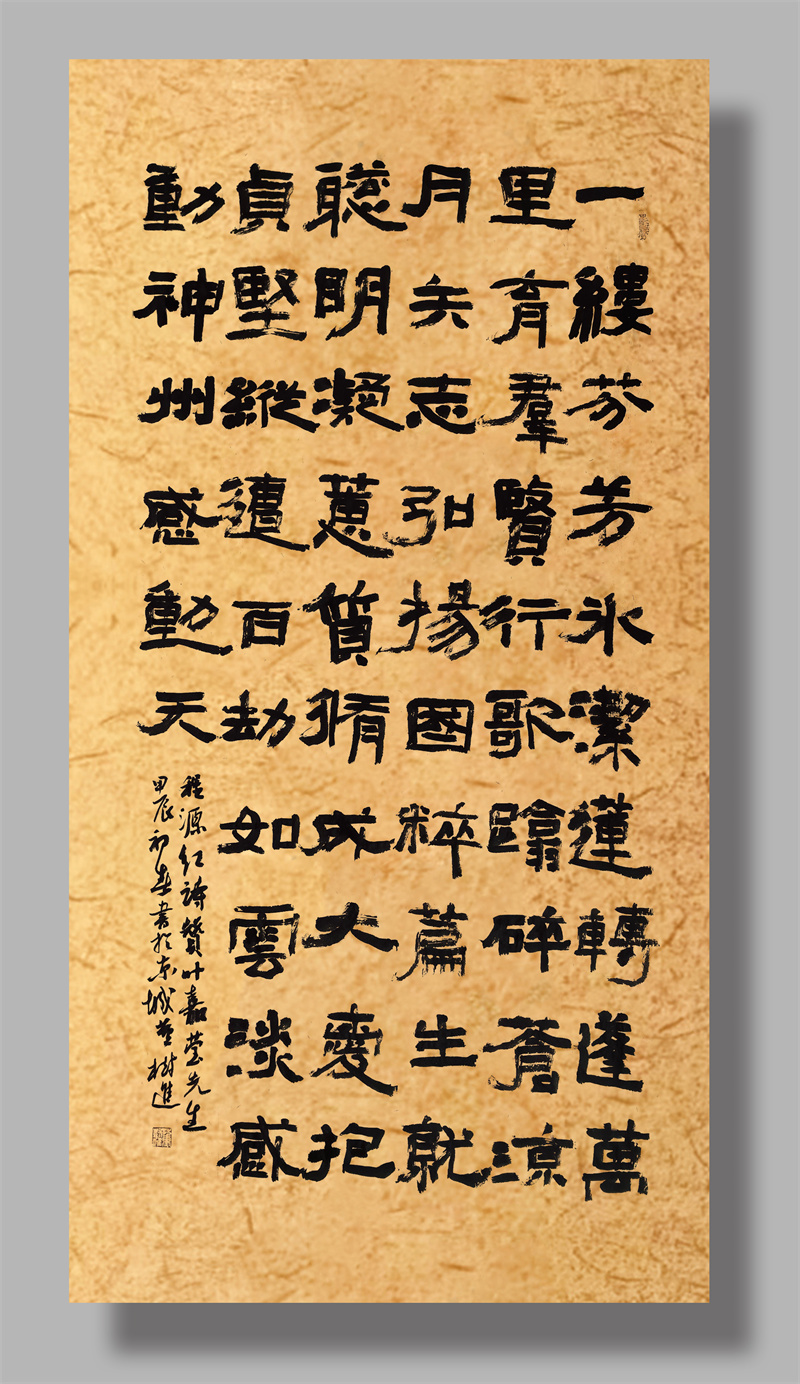 一縷芬芳氷潔蓮轉蓬萬
里育羣賢行歌蹋碎蒼涼
月矢志弘揚國粹篇生就
聰明凝蕙質脩成大愛抱
貞堅縱遣百劫如雲淡感
動神州感動天
程源红詩贊叶嘉莹先生
甲辰初春書於京城董樹進